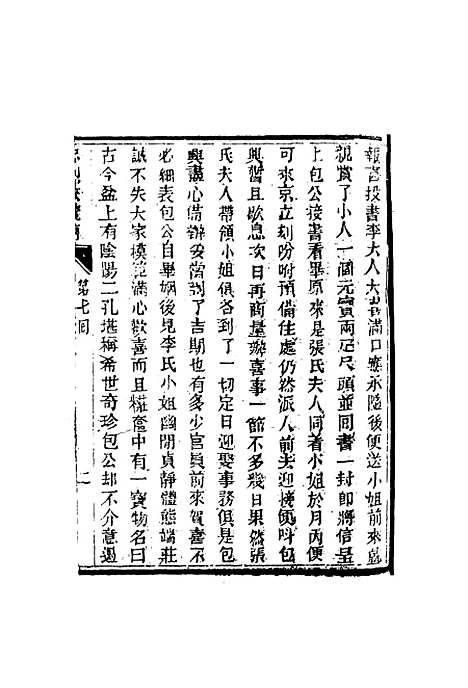 報喜投書李大人大喜滿口應承隨後便送小姐前來就
親賞了小人一個元寶兩疋尺頭並回書一封即將信呈
上包公接書看畢原來是張氏夫人同着小姐於月內便
可來京立刻吩咐預備住處仍然派人前去迎接便叫包
興暫且歇息次日再商量辦喜事一節不多幾日果然張
氏夫人帶領小姐俱各到了一切定日迎娶事務俱是包
興盡心備辦妥當到了吉期也有多少官員前來賀喜不
必細表包公自畢姻後見李氏小姐幽閒貞靜體態端莊
誠不失大家模範滿心歡喜而且糚奩中有一寶物名曰
古今盆上有陰陽二孔堪稱希世奇珍包公却不介意過
第七回
二